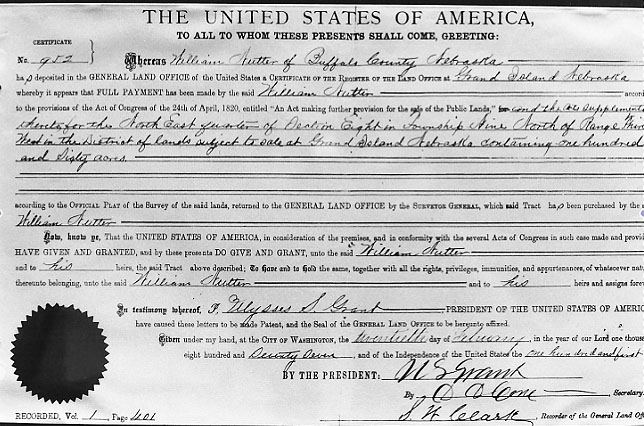 THE UNITED STATES OF AMERICA,
TO ALL TO WHOM THESE PRESENTS SHALL COME, GREETING:
CERTIFICATE
No. 982 } Whereas William Nutter of Buffalo County Nebraska
ha s deposited in the GENERAL LAND OFFICE of the United States a CERTIFICATE OF THE REGISTER OF THE LAND OFFICE AT Grand Island Nebraska
whereby it appears that FULL PAYMENT has been made by the said William Nutter accord
to the provisions of the Act of Congress of the 24th of April, 1820, entitled "An Act making further provision for the sale of the Public Lands," and the Acts supplemental
thereto for the North East quarter of Section Eight in Township Nine North of Range
West in the District of lands subject to sale at Grand Island Nebraska containing one hundred
and Sixty acres
according to the OFFICIAL PLAT of the Survey of the said lands, returned to the GENERAL LAND OFFICE by the SURVEYOR GENERAL, which said Tract ha s been purchased by the s
William Nutter
Now, know ye, That the UNITED STATES OF AMERICA, in consideration of the premises, and in conformity with the several Acts of Congress in such case made and provid
HAVE GIVEN AND GRANTED, and by these presents DO GIVE AND GRANT, unto the said William Nutter
and to his heirs, the said Tract above described; To have and to hold the same, together with all the rights, privileges, immunities, and appurtenances, of whatsoever natu
thereunto belonging, unto the said William Nutter and to his heirs and assigns forev
In testimony whereof, I, Ulysses S. Grant PRESIDENT OF THE UNITED STATES OF AMERIC
have caused these letters to be made Patent, and the Seal of the GENERAL LAND OFFICE to be hereunto affixed.
Given under my hand, at the CITY OF WASHINGTON, the twentieth day of February, in the year of our Lord one thous
eight hundred and Seventy Seven, and of the Independence of the United States the one hundred and first
BY THE PRESIDENT: U S Grant
By D D Cone, Secretary.
RECORDED, Vol. 1, Page 401 S. W. Clark, Recorder of the General Land Offi